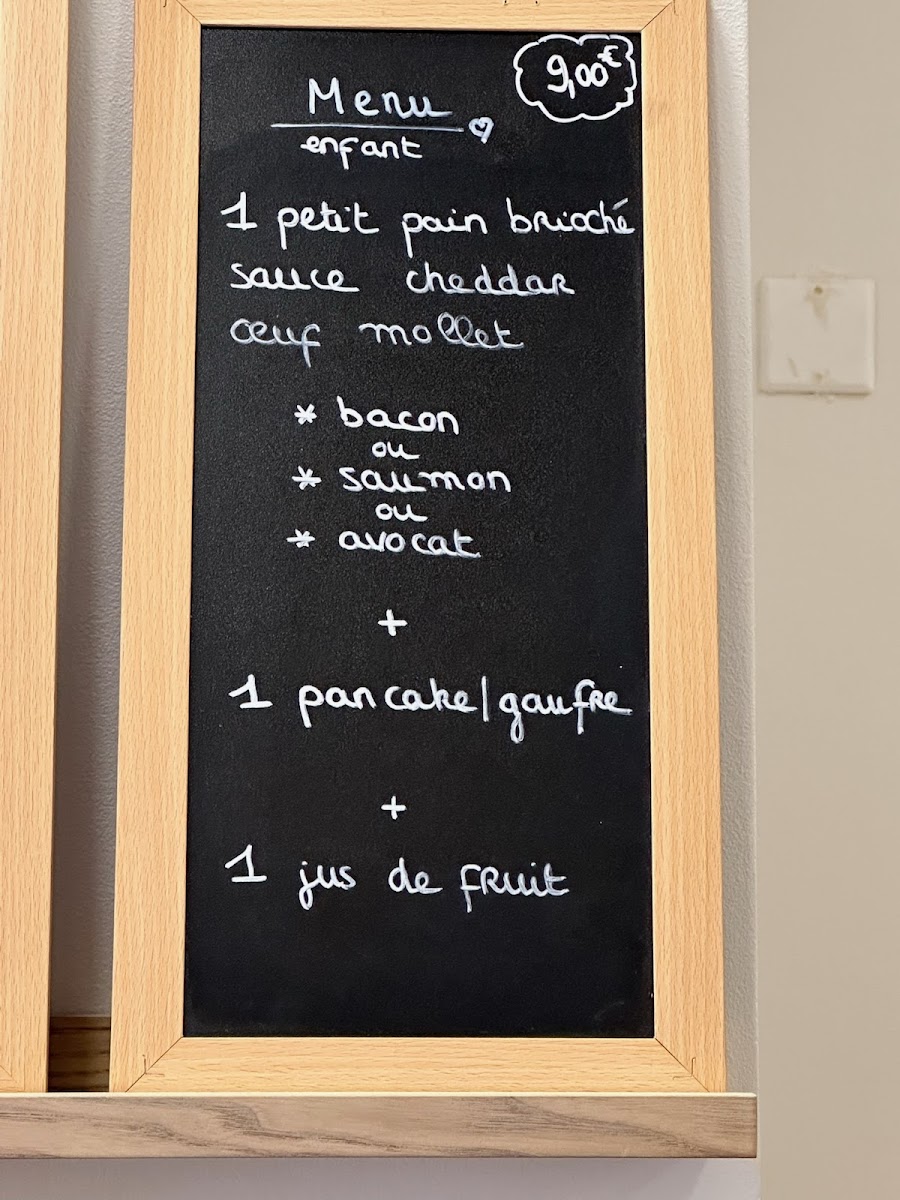 9,00€
Menu
enfant
1 petit pain brioché
sauce cheddar
œuf mollet
* bacon
ou
* saumon
ou
* avocat
+
1 pancake/gaufre
+
1 jus de fruit